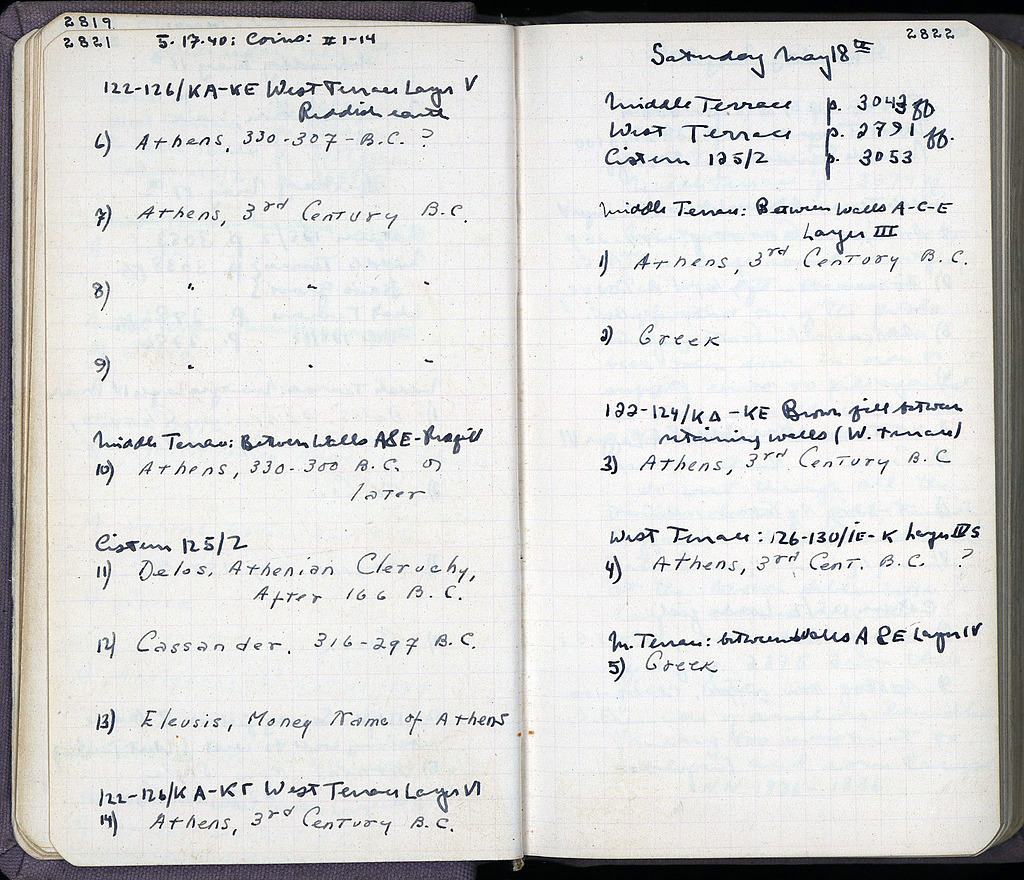 2819
2821 5-17-40: Coins: # 1-14
122-126/KA-KE West Terrace Layer V
Reddish earth
6) Athens, 330-307-B.C. ?
7) Athens, 3rd Century B.C.
8) " " "
9) " " "
Middle Terrace: Between Walls A&E-
10) Athens, 330-300 B.C. or
later
Cistern 125/2
11) Delos, Athenian Cleruchy,
After 166 B.C.
12) Cassander, 316-297 B.C.
13) Eleusis, Money Name of Athens
122-126/KA-KΓ West Terrace Layer VI
14) Athens, 3rd Century B.C.
2822
Saturday May 18th
Middle Terrace p. 3043 ff
West Terrace p. 2791 ff.
Cistern 125/2 p. 3053
Middle Terrace: Between Walls A-C-E
Layer III
1) Athens, 3rd Century B.C.
2) Greek
122-124/KA-KE Brown fill between
retaining walls (W. Terrace)
3) Athens, 3rd Century B.C
West Terrace: 126-130/IE-K Layer IV S
4) Athens, 3rd Cent. B.C. ?
M. Terrace: between Walls A & E Layer IV
5) Greek